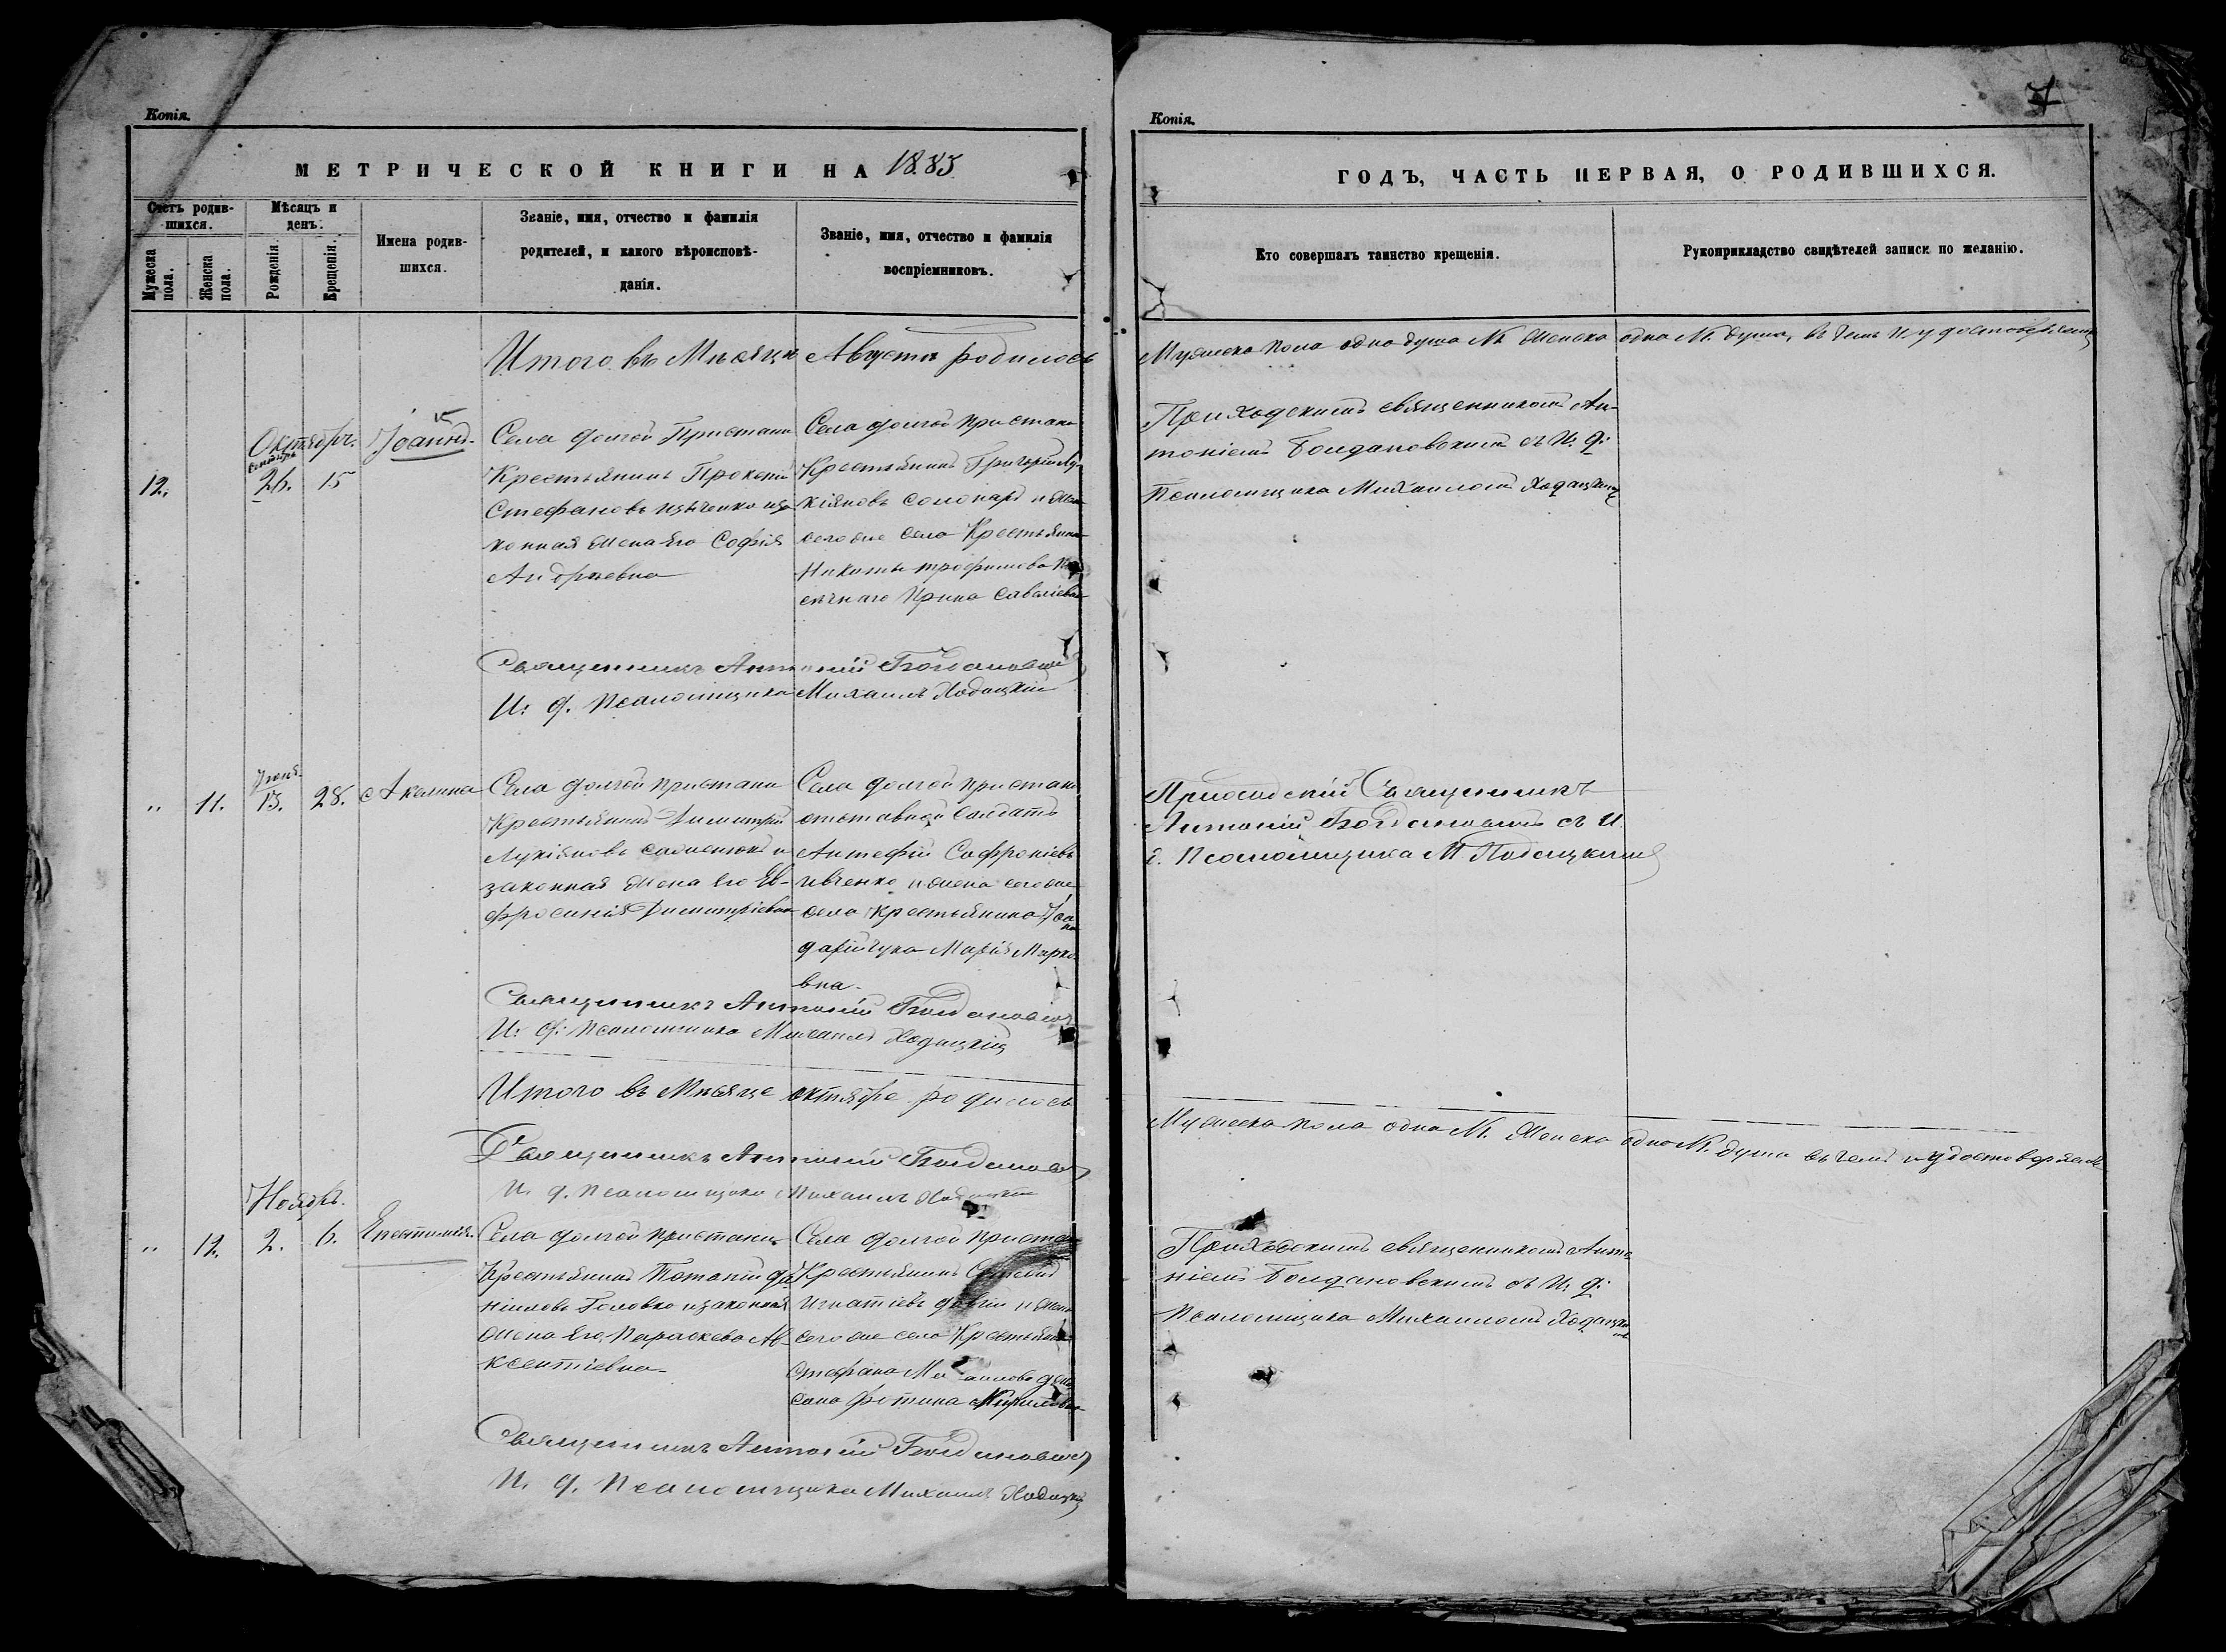 Копія.
МЕТРИЧЕСКОЙ КНИГИ НА 1885
Счетъ родив-
шихся.
Мѣсяцъ и
день.
Мужеска
пола.
Женска
пола.
Рожденія.
Крещенія.
Имена родив-
шихся.
Званіе, имя, отчество и фамилія
родителей, и какого вѣроисповѣ-
данія.
Званіе, имя, отчество и фамилія
воспріемниковъ.
Итого въ Мѣсяцѣ Августѣ родилось
Октябрь.
12.
26. 15
Іоаннъ
Села Голой Пристани
Крестьянинъ
Стефановъ
конная жена его Софія
Андреевна
Села Голой Пристани
Крестьянинъ Григорій Лу-
кіановъ и жена
сего же села Крестьянина
Никиты Трофимова
Ирина Савеліева
Священникъ Антоній Богдановскій
И. д. Псаломщика Михаилъ Ходацкій
„ 11. 13. 28. Акилина
Села Голой Пристани
Крестьянинъ Димитрій
Лукіановъ и
законная жена его Ев-
фросинія Димитріевна
Села Голой Пристани
отставной солдатъ
Софроніевъ
Ивченко и жена сего же
села Крестьянина Іоан
на
Марія Марко-
вна.
Священникъ Антоній Богдановскій
И. д. Псаломщика Михаилъ Ходацкій
Итого въ Мѣсяце октябре родилось
Священникъ Антоній Богдановскій
И. д. Псаломщика Михаилъ Ходацкій
Ноябрь.
„ 12. 2. 6. Епестимія.
Села Голой Пристани
Крестьянинъ Потапій Да-
ніиловъ Головко и законная
жена его Параскева Ав-
ксентіевна
Села Голой Пристани
Крестьянинъ
Игнатіевъ и жена
сего же села Крестьянина
Стефана
Фотина Кирилова
Священникъ Антоній Богдановскій
И. д. Псаломщика Михаилъ Ходацкій
Копія.
7
ГОДЪ, ЧАСТЬ ПЕРВАЯ, О РОДИВШИХСЯ.
Кто совершалъ таинство крещенія.
Рукоприкладство свидѣтелей записи по желанію.
Мужеска пола одна душа № Женска одна №. душа, въ чемъ и удостоверяемъ
Приходскимъ священникомъ Ан-
тоніемъ Богдановскимъ съ И. д.
Псаломщика Михаиломъ Ходацкимъ
Приходскій Священникъ
Антоній Богдановскій съ И.
д. Псаломщика М Ходацкимъ
Мужеска пола одна №. Женска одна №. душа въ чемъ и удостоверяемъ
Приходскимъ священникомъ Анто-
ніемъ Богдановскимъ съ И. д.
Псаломщика Михаиломъ Ходацки-
мъ